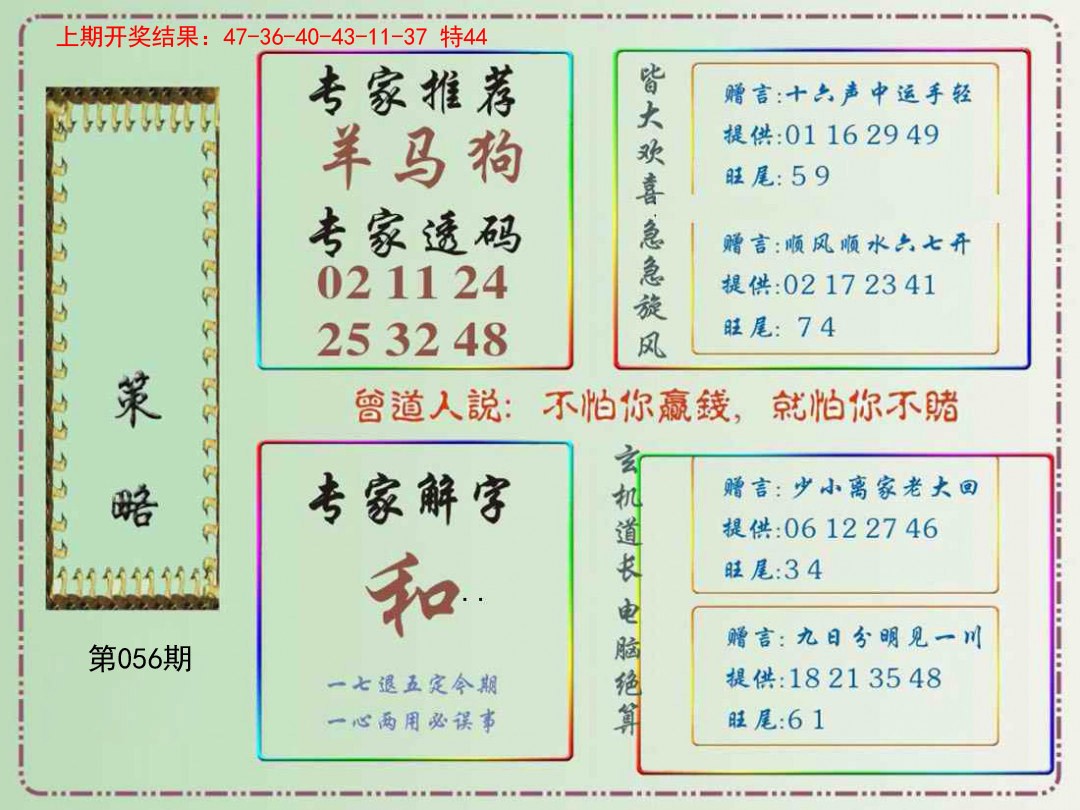 上期开奖结果：47-36-40-43-11-37 特44
策略
第056期
专家推荐
羊马狗
专家透码
02 11 24
25 32 48
皆大欢喜
赠言:十六声中运手轻
提供:01 16 29 49
旺尾: 5 9
急急旋风
赠言:顺风顺水六七开
提供:02 17 23 41
旺尾: 7 4
曾道人説：不怕你赢錢，就怕你不賭
专家解字
和
一七退五定今期
一心两用必误事
玄机道长
赠言: 少小离家老大回
提供:06 12 27 46
旺尾:3 4
电脑绝算
赠言: 九日分明见一川
提供:18 21 35 48
旺尾:6 1